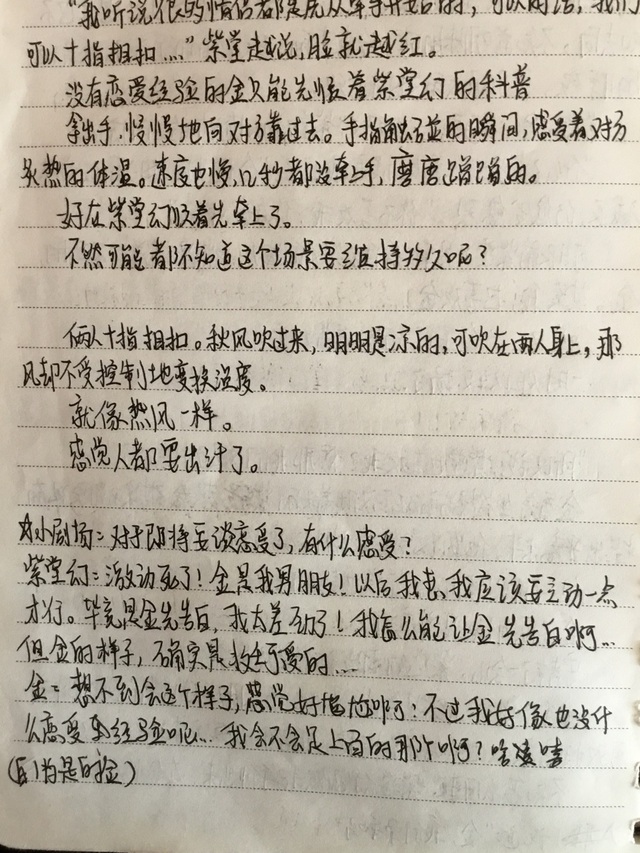 “我听说很多情侣都是从牵手开始的，可以的话，我们
可以十指相扣…”紫堂越说，脸就越红。
没有恋爱经验的金只能先顺着紫堂幻的科普
拿出手，慢慢地向对方靠过去。手指触碰的瞬间，感受着对方
炙热的体温。速度也慢，几秒都没牵上手，磨磨蹭蹭的。
好在紫堂幻顺着先牵上了。
不然可能都不知道这个场景要维持多久呢？
俩人十指相扣。秋风吹过来，明明是凉的，可吹在两人身上，那
风却不受控制地变换温度。
就像热风一样。
感觉人都要出汗了。
小剧场：对于即将要谈恋爱了，有什么感受？
紫堂幻：激动死了！金是我男朋友！以后我 我应该要主动一点
才行。毕竟是金先告白，我太差劲了！我怎么能让金先告白啊…
但金的样子，确实是 可爱的…
金：想不到会这个样子，感觉好尴尬啊！不过我好像也没什
么恋爱 经验呢… 我会不会是上面的那个啊？哈 嘻